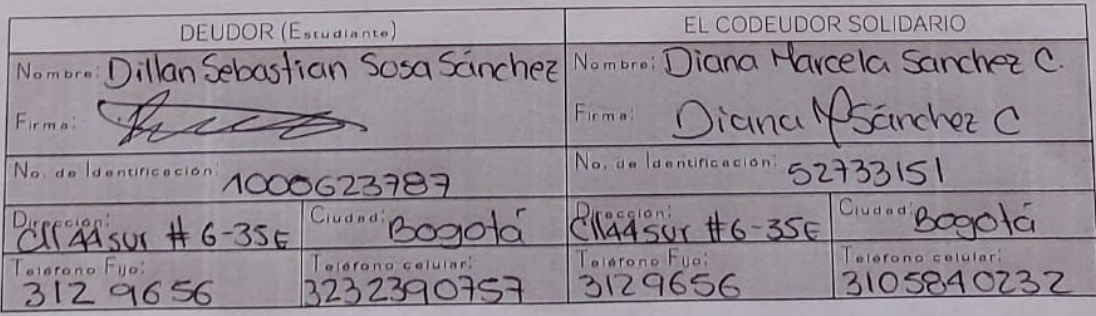 DEUDOR (Estudiante)
EL CODEUDOR SOLIDARIO
Nombre: Dillan Sebastian Sosa Sánchez
Nombre: Diana Marcela Sanchez C.
Firma:
Firma: Diana M Sánchez C
No. de Identificación: 1000623787
No. de Identificación: 52733151
Dirección: Cll 44 sur # 6-35E
Ciudad: Bogotá
Dirección: Cll 44 sur # 6-35E
Ciudad: Bogotá
Teléfono Fijo: 3129656
Teléfono celular: 3232390757
Teléfono Fijo: 3129656
Teléfono celular: 3105840232